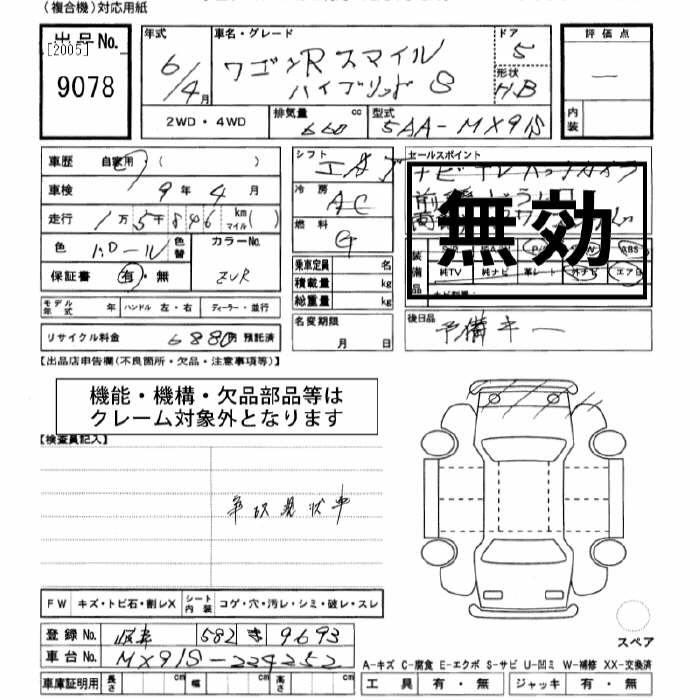 (複合機)対応用紙
出品No. [2005] 9078
年式 6/4月
車名・グレード ワゴンRスマイル ハイブリッドS
ドア 5
形状 H.B
評価点 —
内装
2WD・4WD
排気量 660 cc
型式 5AA-MX91S
車歴 自家用 ( )
車検 9年4月
走行 1万5千846 km マイル( )
色 パール 色替
カラーNo. ZVR
保証書 有・無
モデル年式 年 ハンドル 左・右 ディーラー・並行
リサイクル料金 6880円 預託済
シフト
冷房 AC
燃料 G
乗車定員 名
積載量 kg
総重量 kg
名変期限 月 日
セールスポイント
ナビ TV バックカメラ
無効
装備品
ABS
純TV 純ナビ 革シート 外ナビ エアB
後日品 予備キー
【出品店申告欄(不良箇所・欠品・注意事項等)】
機能・機構・欠品部品等は
クレーム対象外となります
【検査員記入】
事故現状車
FW キズ・トビ石・割レX シート内装 コゲ・穴・汚レ・シミ・破レ・スレ
登録No. 岐阜 582 き 9693
車台No. MX91S-224252
車庫証明用 長さ cm 幅 cm 高さ cm
スペア
A-キズ C-腐食 E-エクボ S-サビ U-凹ミ W-補修 XX-交換済
工具 有・無 ジャッキ 有・無